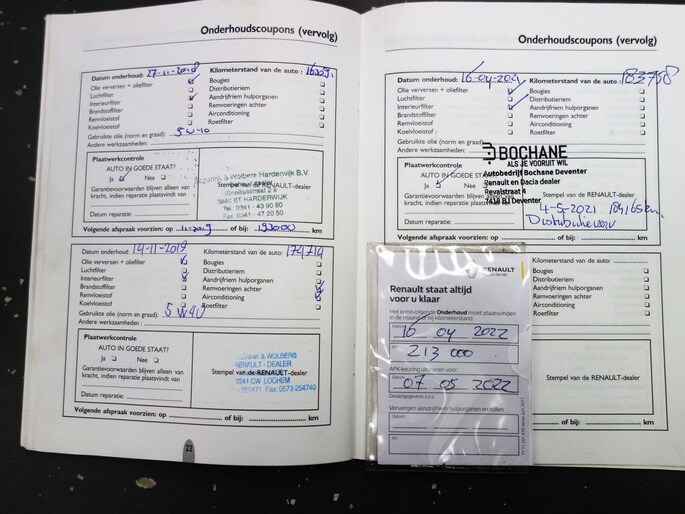 Onderhoudscoupons (vervolg)
Datum onderhoud: 27-11-2018
Kilometerstand van de auto:
Olie verversen + oliefilter
Bougies
Luchtfilter
Distributieriem
Interieurfilter
Aandrijfriem hulporganen
Brandstoffilter
Remvoeringen achter
Remvloeistof
Airconditioning
Koelvloeistof
Gebruikte olie (norm en graad): 5W40
Andere werkzaamheden:
Plaatwerkcontrole
AUTO IN GOEDE STAAT?
Ja Nee
Garantievoorwaarden blijven alleen van
kracht, indien reparatie plaatsvindt van
Datum reparatie:
& Wolbers Harderwijk B.V.
HARDERWIJK
Tel. 0341 - 43 90 80
Fax. 0341 - 47 20 50
Stempel van de RENAULT-dealer
Volgende afspraak voorzien: op 11-2019 of bij: 193000 km
Datum onderhoud: 14-11-2019
Kilometerstand van de auto: 174714
Olie verversen + oliefilter
Bougies
Luchtfilter
Distributieriem
Interieurfilter
Aandrijfriem hulporganen
Brandstoffilter
Remvoeringen achter
Remvloeistof
Airconditioning
Koelvloeistof
Gebruikte olie (norm en graad): 5W40
Andere werkzaamheden:
Plaatwerkcontrole
AUTO IN GOEDE STAAT?
Ja Nee
Garantievoorwaarden blijven alleen van
kracht, indien reparatie plaatsvindt van
Datum reparatie:
& WOLBERS
RENAULT - DEALER
7241 CW LOCHEM
Fax: 0573-254740
Stempel van de RENAULT-dealer
Volgende afspraak voorzien: op of bij: km
22
Onderhoudscoupons (vervolg)
Datum onderhoud: 16-04-2021
Kilometerstand van de auto: 183758
Olie verversen + oliefilter
Bougies
Luchtfilter
Distributieriem
Interieurfilter
Aandrijfriem hulporganen
Brandstoffilter
Remvoeringen achter
Remvloeistof
Airconditioning
Koelvloeistof
Gebruikte olie (norm en graad):
Andere werkzaamheden:
BOCHANE
ALS JE VOORUIT WIL
Autobedrijf Bochane Deventer
Renault en Dacia dealer
Revalstraat 4
7418 BJ Deventer
Plaatwerkcontrole
AUTO IN GOEDE STAAT?
Ja Nee
Garantievoorwaarden blijven alleen van
kracht, indien reparatie plaatsvindt van
Datum reparatie:
Stempel van de RENAULT-dealer
4-5-2021
Volgende afspraak voorzien: op of bij: km
RENAULT
Renault staat altijd
voor u klaar
Het eerstvolgende Onderhoud moet plaatsvinden
in de maand of bij kilometerstand:
16 04 2022
213 000
APK-keuring uitvoeren voor:
07 05 2022
Vervangen aandrijfriem hulporganen en rollen
Kilometerstand van de auto:
Bougies
Distributieriem
Aandrijfriem hulporganen
Remvoeringen achter
Airconditioning
Stempel van de RENAULT-dealer
of bij: km